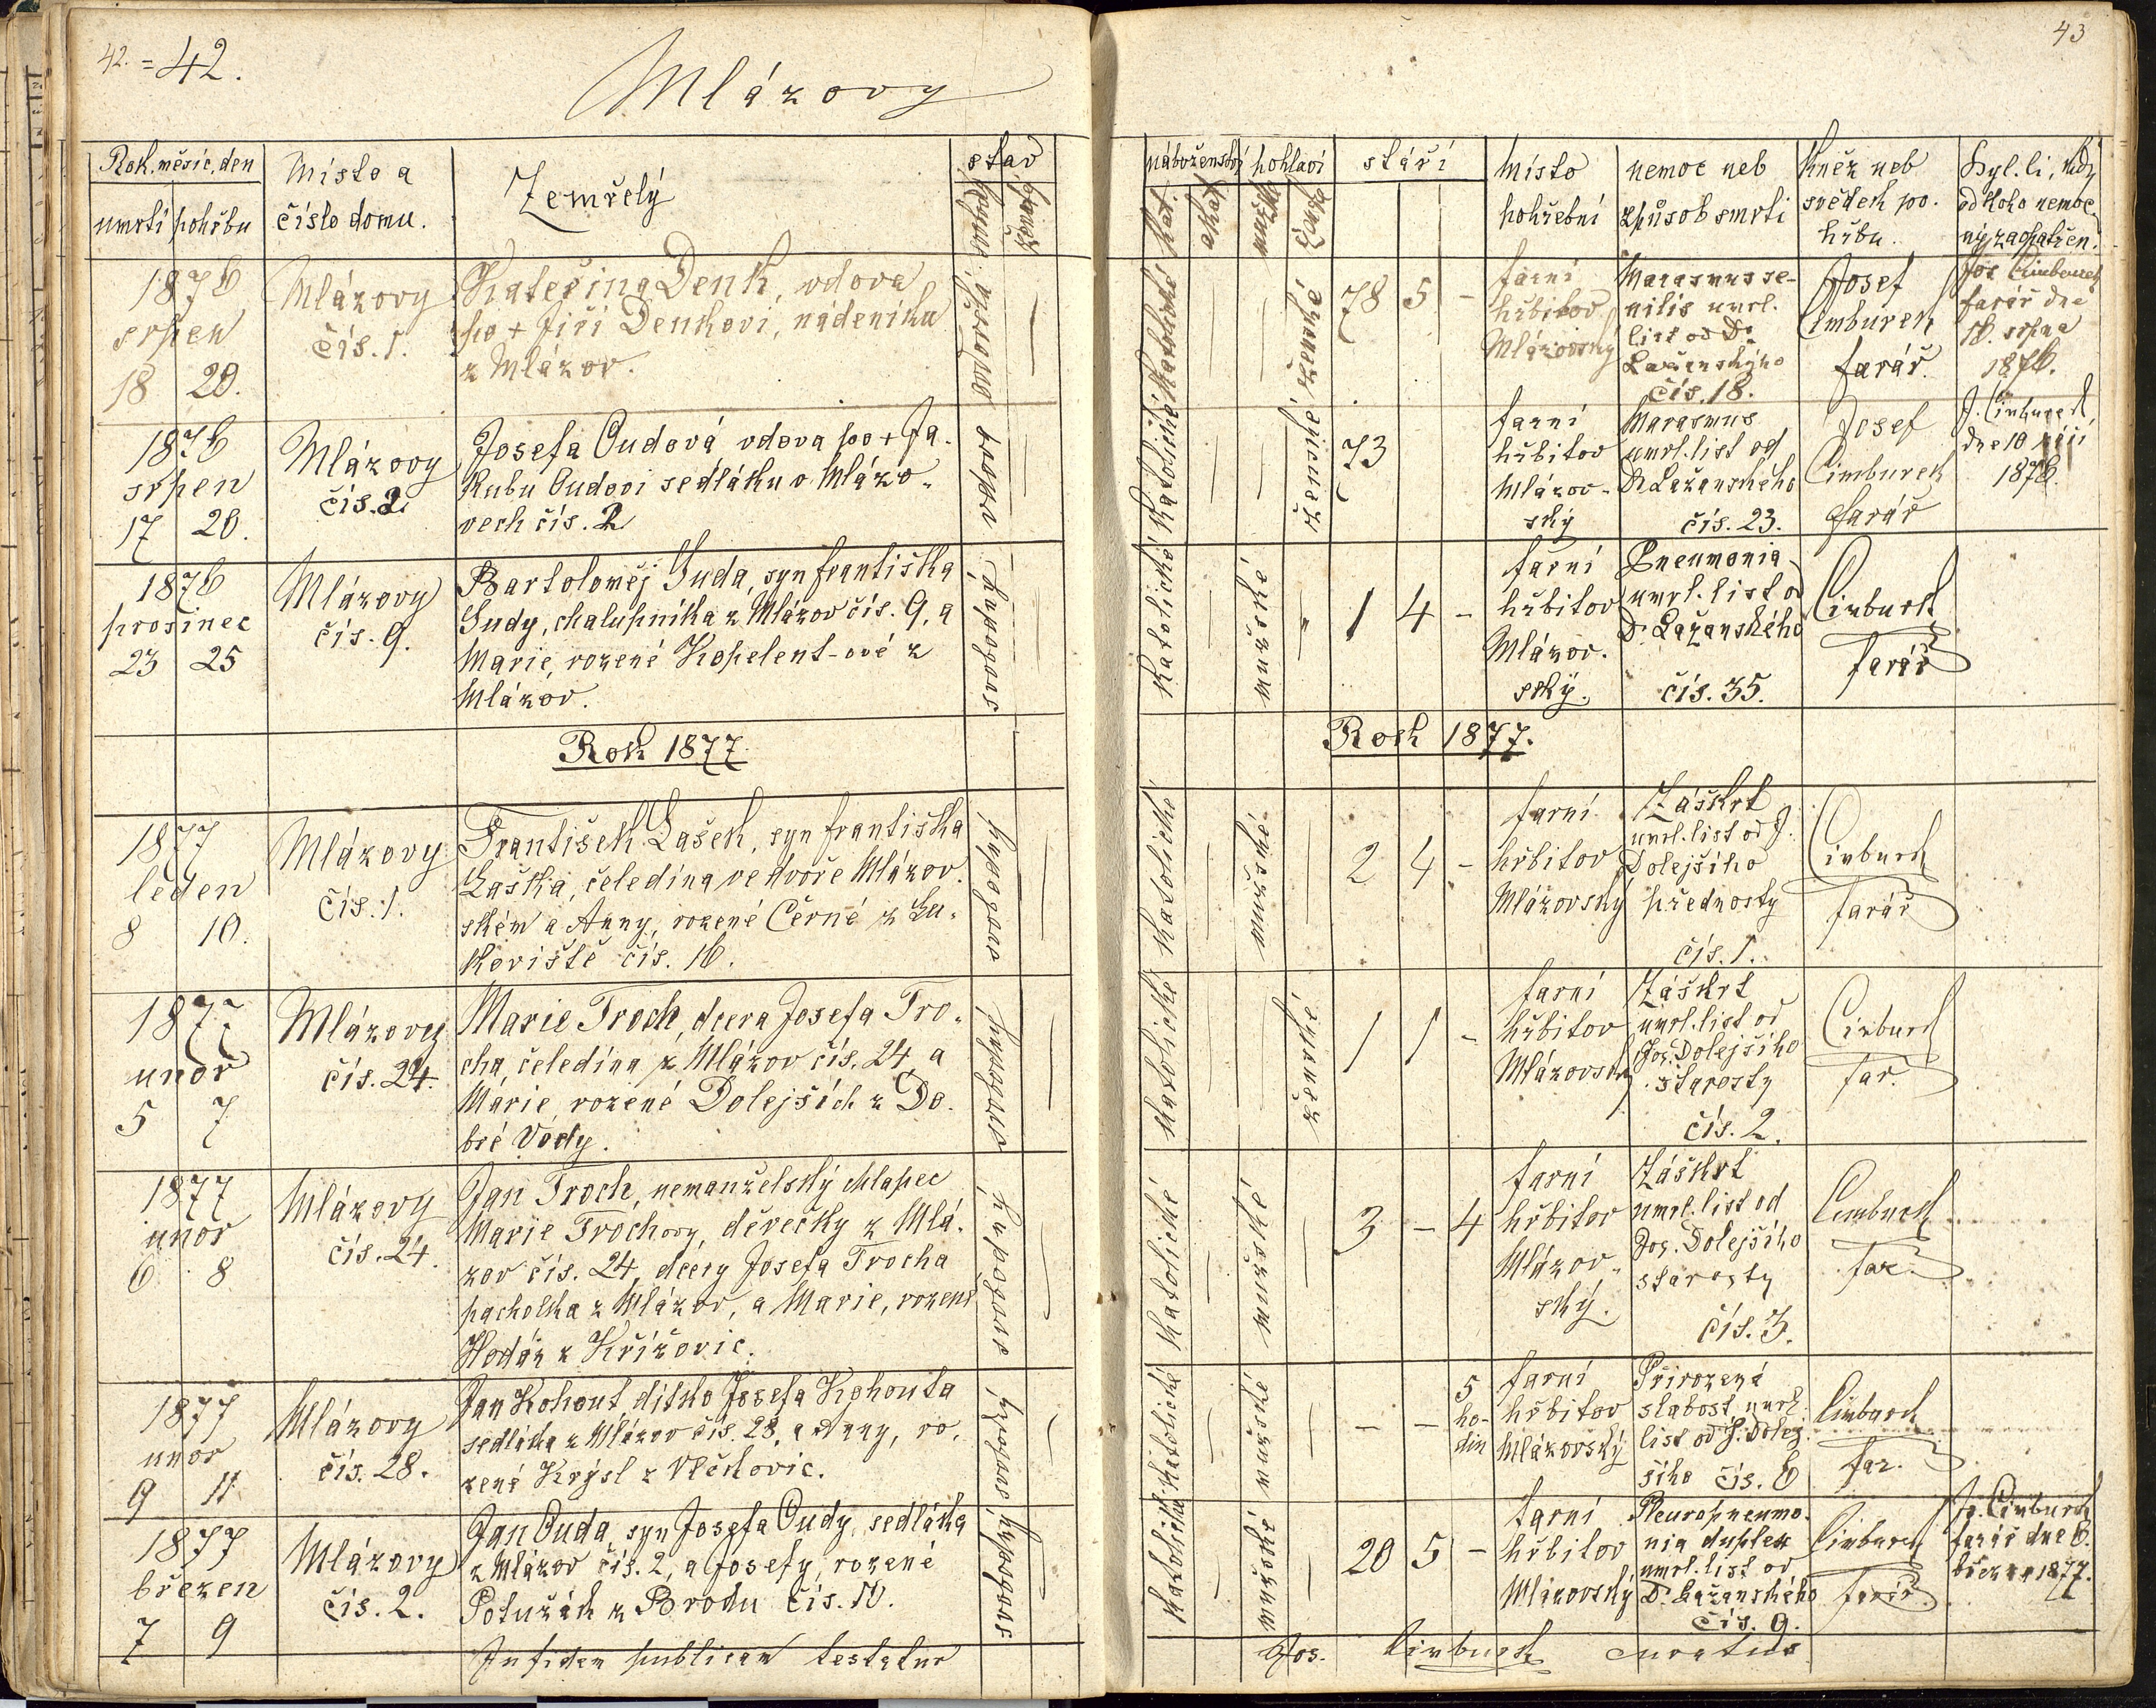 42. = 42.
Mlázovy
Rok, měsíc, den
umrtí pohřbu
Místo a
číslo domu.
Zemřelý
stav
svobod.
ženat.
1876
srpen
18 20.
Mlázovy
čís. 1.
Kateřina Denk, vdova
po + Jiří Denkovi, nádeníku
z Mlázov.
ovdovělá
1876
srpen
17 20.
Mlázovy
čís. 2
Josefa Oudová vdova po + Ja-
kubu Oudovi sedláku v Mlázo-
vech čís. 2
vdova
1876
prosinec
23 25
Mlázovy
čís. 9.
Bartoloměj Suda, syn Františka
Sudy, chalupníka z Mlázov čís. 9, a
Marie, rozené Kopelent-ové z
Mlázov.
svobodný
Rok 1877
1877
leden
8 10.
Mlázovy
čís. 1.
František Lašek, syn Františka
Laška, čeledína ve dvoře Mlázov-
ském a Anny, rozené Černé z Lu-
koviště čís. 16.
svobodný
1877
unor
5 7
Mlázovy
čís. 24.
Marie Troch, dcera Josefa Tro-
cha, čeledína z Mlázov čís. 24, a
Marie, rozené Dolejších z Do-
bré Vody.
svobodný
1877
unor
6 8
Mlázovy
čís. 24.
Jan Troch, nemanželský chlapec
Marie Trochovy, děvečky z Mlá-
zov čís. 24, dcery Josefa Trocha
pacholka z Mlázov, a Marie, rozené
Hodáz z Křížovic.
svobodný
1877
unor
9 11
Mlázovy
čís. 28.
Jan Kohout, dítko Josefa Kohouta
sedláka z Mlázov čís. 28, a Anny, ro-
zené Krýsl z Vlčkovic.
svobodný
1877
březen
7 9
Mlázovy
čís. 2.
Jan Ouda, syn Josefa Oudy, sedláka
z Mlázov čís. 2, a Josefy, rozené
Potužák z Brodu čís. 10.
svobodný
In fidem publicam testatur
43
náboženství pohlaví stáří
kat.
akat.
mužské
ženské
místo
pohřební
nemoc neb
způsob smrti
kněz neb
svědek po-
hřbu.
Byl-li, kdy
od koho nemoc-
ný zaopatřen.
katolické
ženské
78 5 -
farní
hřbitov
Mlázovský
Marasmus se-
nilis umrl.
list od Dr
Lažanského
čís. 18.
Josef
Cimburek
farář.
Jos. Cimburek
farář dne
16. srpna
1876.
katolické
ženské
73
farní
hřbitov
Mlázov-
ský
Marasmus
umrl. list od
Dr Lažanského
čís. 23.
Josef
Cimburek
farář
J. Cimburek
dne 10 září
1876.
katolické
mužské
1 4 -
farní
hřbitov
Mlázov-
ský.
Pneumonia
umrl. list od
Dr Lažanského
čís. 35.
Cimburek
farář
Rok 1877.
katolické
mužské
2 4 -
farní
hřbitov
Mlázovský
Záškrt
umrl. list od J.
Dolejšího
přednosty
čís. 1.
Cimburek
farář
katolické
ženské
1 1 -
farní
hřbitov
Mlázovský
Záškrt
umrl. list od
Jos. Dolejšího
starosty
čís. 2.
Cimburek
far.
katolické
mužské
3 - 4
farní
hřbitov
Mlázov-
ský.
Záškrt
umrl. list od
Jos. Dolejšího
starosty
čís. 3.
Cimburek
far.
katolické
mužské
- - 5
ho-
din
farní
hřbitov
Mlázovský
Přirozená
slabost umrl.
list od J. Dolej-
šího čís. 6
Cimburek
far.
katolické
mužské
20 5 -
farní
hřbitov
Mlázovský
Pleuropneumo-
nia duplex
umrl. list od
Dr. Lažanského
čís. 9.
Cimburek
farář.
Jo. Cimburek
farář dne 6.
března 1877.
Jos. Cimburek curatus